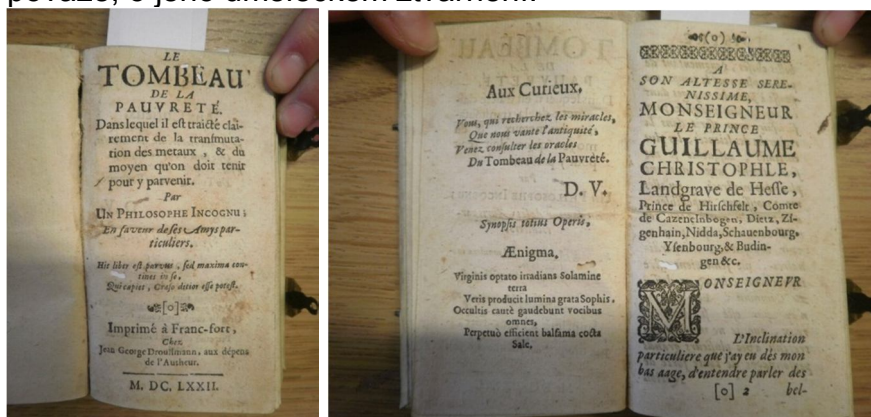 LE
TOMBEAU
DE LA
PAUVRETÉ.
Dans lequel il est traicté clai-
rement de la transmuta-
tion des metaux, & du
moyen qu'on doit tenir
pour y parvenir.
Par
UN PHILOSOPHE INCOGNU;
En faveur de ses Amys par-
ticuliers.
Hic liber est parvus, sed maxima con-
tinet in se.
Qui capiet, Croeso ditior esse potest.
[o]
Imprimé à Franc-fort,
Chez
Jean George Droullmann, aux dépens
de l'Autheur.
M. DC. LXXII.
Aux Curieux.
Vous, qui recherchez les miracles,
Que nous vante l'antiquité,
Venez consulter les oracles
Du Tombeau de la Pauvreté.
D. V.
Synopsis totius Operis,
Ænigma.
Virginis optato irradians Solamine
terra
Veris producit lumina grata Sophis.
Occultis cautè gaudebunt vocibus
omnes,
Perpetuò efficient balsama cocta
Sale.
(o)
A
SON ALTESSE SERE-
NISSIME,
MONSEIGNEUR
LE PRINCE
GUILLAUME
CHRISTOPHLE,
Landgrave de Hesse,
Prince de Hirschfelt, Comte
de Cazenelnbogen, Dietz, Zi-
genhain, Nidda, Schauenbourg,
Ysenbourg, & Budin-
gen &c.
MONSEIGNEVR
L'Inclination
particuliere que j'ay eu dès mon
bas aage, d'entendre parler des
[o] 2 bel-